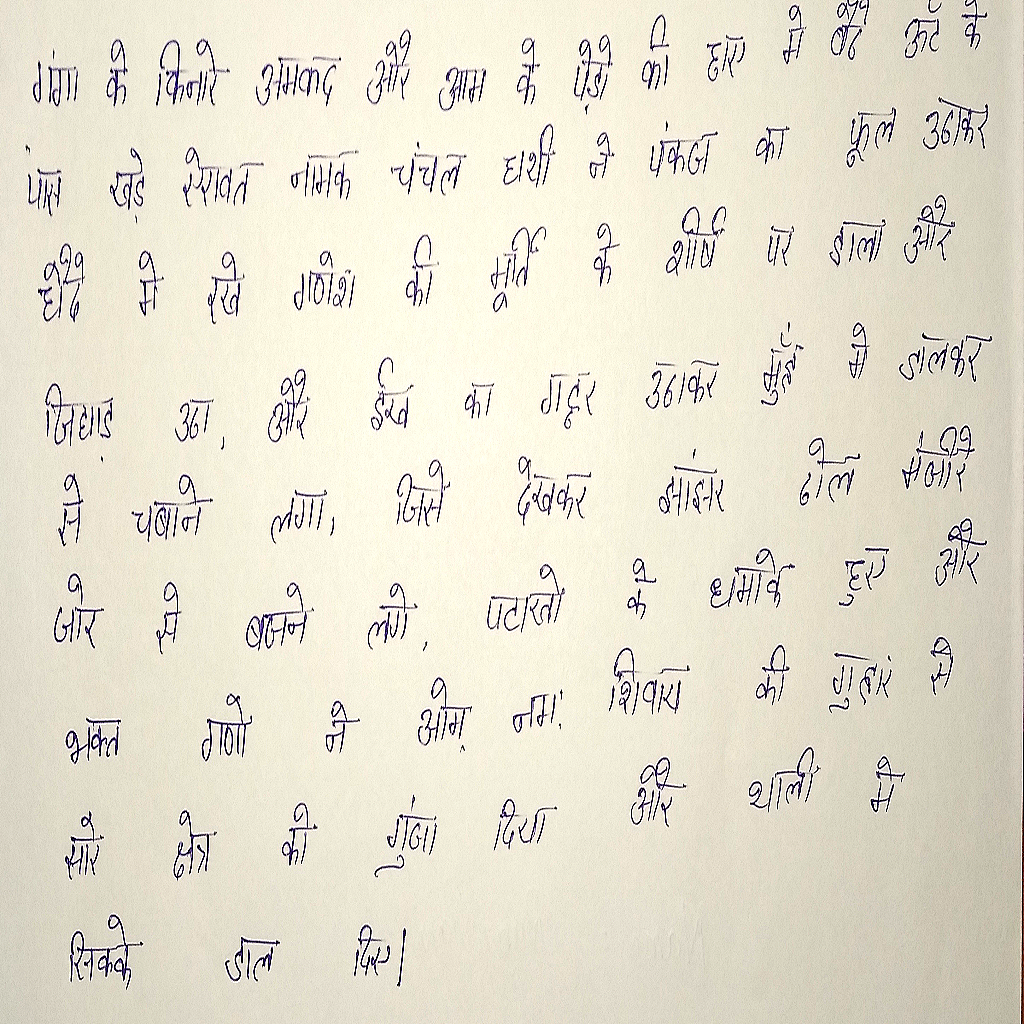 गंगा के किनारे अमकद और आम के पेड़ो की छाए मे बैठे ऊंट के
पास खड़े ऐरावत नामक चंचल हाथी ने पंकज का फूल उठाकर
हौदे मे रखे गणेश की मूर्ति के शीर्ष पर डाला और
चिघाड़ उठा, और ईख का गट्ठर उठाकर मुंह मे डालकर
से चबाने लगा, जिसे देखकर झांझर ढोल मंजीरे
जोर से बजने लगे, पटाखो के धमाके हुए और
भक्त गणो ने ओम् नमः शिवाय की गुहार से
सारे क्षेत्र को गुंजा दिया और थाली मे
सिक्के डाल दिए।